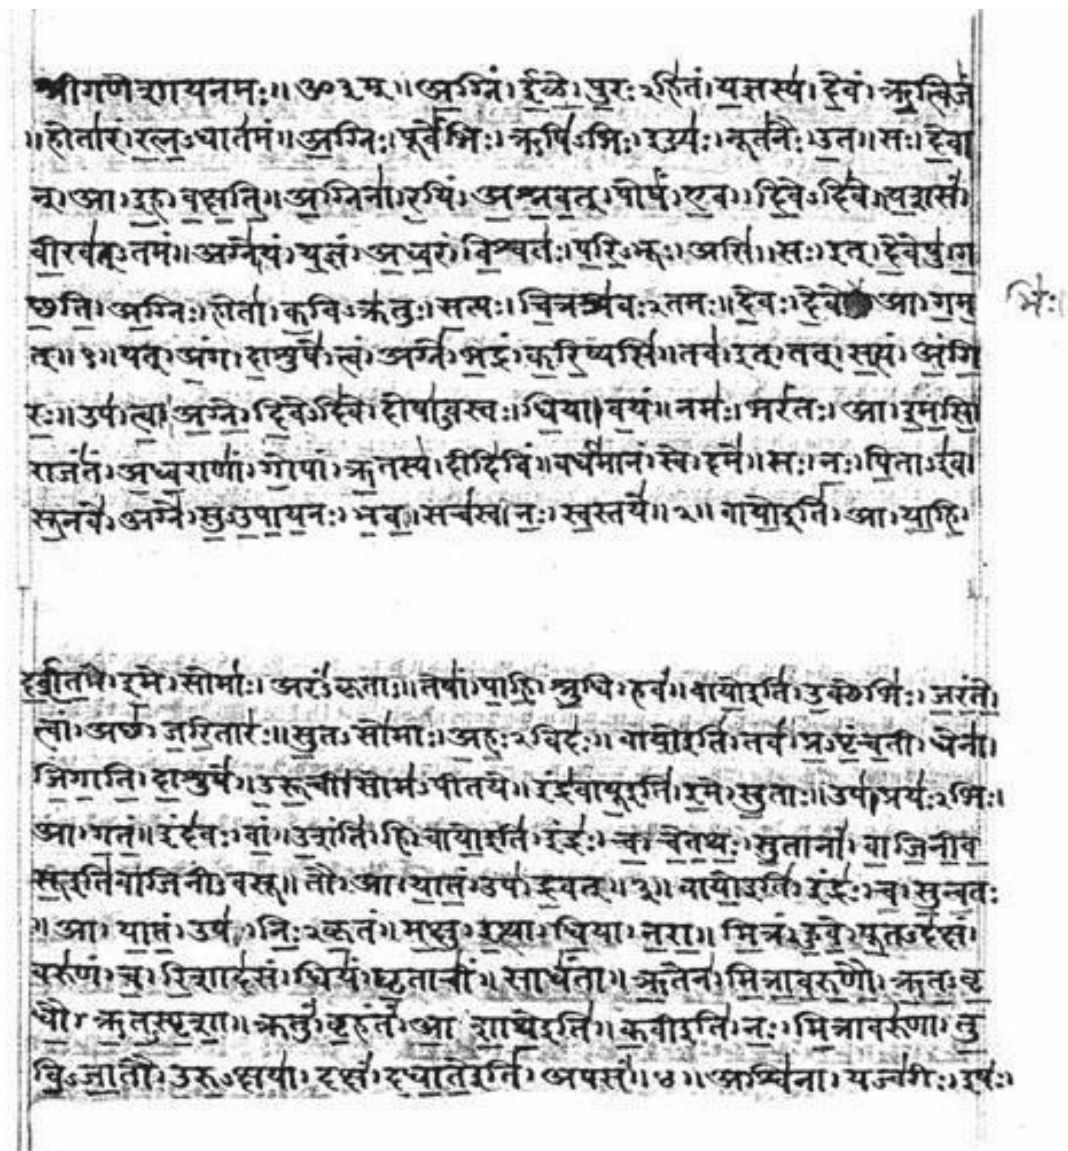 श्रीगणेशायनमः॥ ॐ३म् ॥ अ॒ग्निं। ई॒ळे॒। पु॒रःऽहि॑तं। य॒ज्ञस्य॑। दे॒वं। ऋ॒त्विजं॑
॥होता॑रं। र॒त्न॒ऽधात॑मं॥ अ॒ग्निः। पूर्वे॑भिः। ऋषि॑ऽभिः। ईड्यः॑। नूत॑नैः। उ॒त॥ सः। दे॒वा
न्। आ। इ॒ह। व॒क्ष॒ति॒॥ अ॒ग्निना॑। र॒यिं। अ॒श्न॒व॒त्। पोषं॑। ए॒व। दि॒वेऽदि॑वे॥ य॒शसं॑
वी॒रव॑त्ऽतमं॥ अग्ने॑। यं। य॒ज्ञं। अ॒ध्व॒रं। वि॒श्वतः॑। प॒रि॒ऽभूः। असि॑॥ सः। इत्। दे॒वेषु॑। ग॒
च्छ॒ति॒। अ॒ग्निः। होता॑। क॒विऽक्र॑तुः। स॒त्यः। चि॒त्रश्र॑वःऽतमः॥ दे॒वः। दे॒वे आ। ग॒म॒ भिः॑।
त्॥१॥ यत्। अं॒ग। दा॒शुषे॑। त्वं। अग्ने॑। भ॒द्रं। क॒रि॒ष्यसि॑॥ तव॑। इत्। तत्। स॒त्यं। अं॒गि॒
रः॒॥ उप॑। त्वा॒। अ॒ग्ने॒। दि॒वेऽदि॑वे। दोषा॑ऽवस्तः। धि॒या। व॒यं॥ नमः॑। भरं॑तः। आ। इ॒म॒सि॒
राजं॑तं। अ॒ध्व॒राणां॑। गो॒पां। ऋ॒तस्य॑। दीदि॑विं॥ वर्ध॑मानं। स्वे। दमे॑॥ सः। नः॒। पि॒ताऽइ॑व।
सू॒नवे॑। अग्ने॑। सु॒ऽउ॒पा॒य॒नः। भ॒व॒॥ सच॑स्व। नः॒। स्व॒स्तये॑॥२॥ वायो॒इति॑। आ। या॒हि॒।
द॒र्श॒त॒। इ॒मे। सोमाः॑। अरं॑ऽकृताः॥ तेषां॑। पा॒हि॒। श्रु॒धि। हवं॑॥ वायो॒इति॑। उ॒क्थेभिः॑। ज॒रं॒ते॒
त्वां। अच्छ॑। ज॒रि॒तारः॑॥ सु॒तऽसो॑माः। अ॒हः॒ऽविदः॑॥ वायो॒इति॑। तव॑। प्र॒ऽपृं॒च॒ती। धेना॑।
जि॒गा॒ति॒। दा॒शुषे॑॥ उ॒रू॒ची। सोम॑ऽपीतये॥ इंद्र॑वायू॒इति॑। इ॒मे। सु॒ताः॥ उप॑। प्रयः॑ऽभिः।
आ। ग॒तं॒॥ इंद॑वः। वां॒॥ उ॒शंति॑। हि। वायो॒इति॑। इंद्रः॑। च॒। चे॒त॒थः॒। सु॒तानां॑। वा॒जि॒नी॒व॒
सू॒इति॑वाजिनीऽवसू॥ तौ। आ। या॒तं॒। उप॑। द्र॒वत्॥३॥ वायो॒इति॑। इंद्रः॑। च॒। सु॒न्व॒तः
॥ आ। या॒तं॒। उप॑। निः॒ऽकृ॒तं॥ म॒क्षु। इ॒त्था। धि॒या। न॒रा॒॥ मि॒त्रं। हु॒वे॒। पू॒तऽद॑क्षं।
वरु॑णं। च॒। रि॒शाद॑सं। धियं॑। घृ॒ताचीं॑॥ साधं॑ता॥ ऋ॒तेन॑। मि॒त्रा॒व॒रु॒णौ॒। ऋ॒त॒ऽवृ॒
धौ॒। ऋ॒त॒ऽस्पृ॒शा॒॥ क्रतुं॑। बृ॒हंतं॑। आ॒शा॒थे॒इति॑॥ क॒वीइति॑। नः॒। मि॒त्रावरु॑णा। तु॒
वि॒ऽजा॒तौ। उ॒रु॒ऽक्षया॑। दक्षं॑। द॒धा॒ते॒इति॑। अ॒पसं॑॥४॥ अश्वि॑ना। यज्व॑रीः। इषः॑।